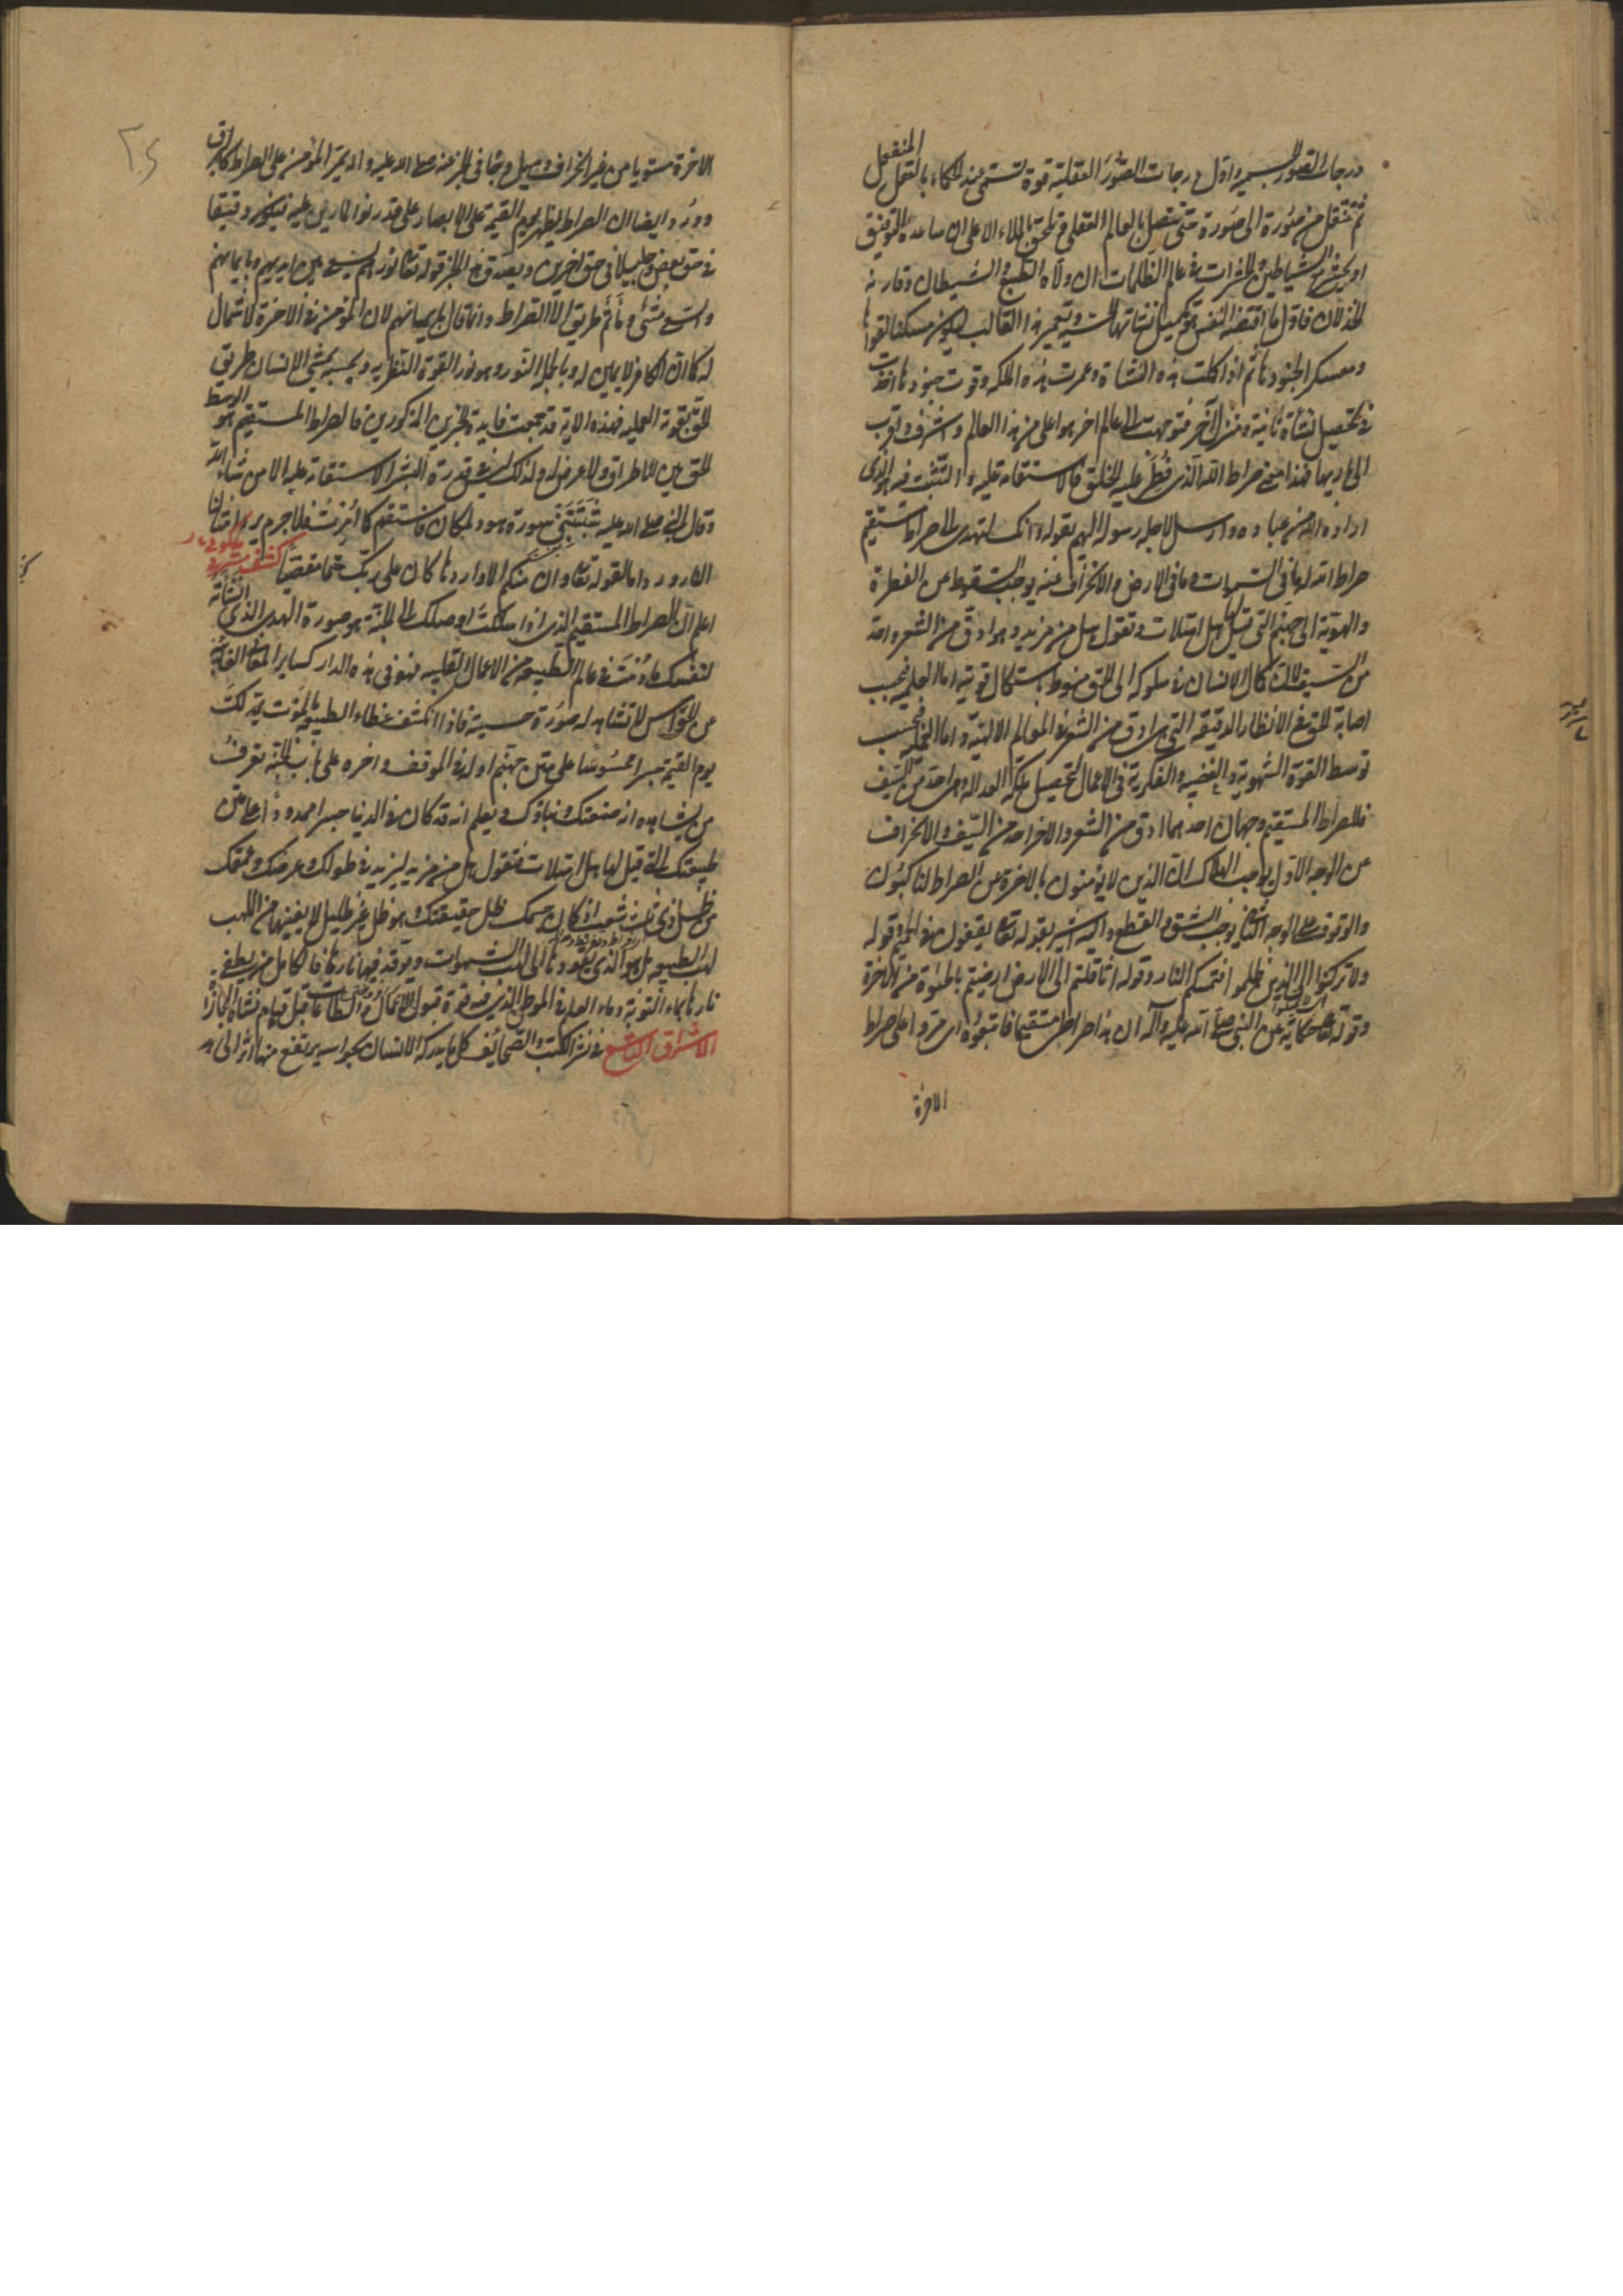 درجات الصور الحسية و اول درجات الصور العقلية قوة تسمى عند الحكماء بالعقل المنفعل
ثم تنتقل من صورة الى صورة حتى تتصل بالعالم العقلى و تلحق بالملاء الاعلى ان ساعده التوفيق
او يحشر مع الشياطين و الحشرات فى عالم الظلمات ان ولاه الطبع و الشيطان و قارنه
الخذلان فاول ما اقتضته النفس تكميل نشاتها الحسية و تعمير هذا القالب ليكون مسكنا لقواها
و معسكر الجنودها ثم اذا كملت هذه النشاة و عمرت هذه المملكه و قوت جنودها اخذت
فى تحصيل نشأة ثانية و منزل آخر فتوجهت الى عالم اخر هو اعلى من هذا العالم و اشرف و اقرب
الى باريها فهذا معنى صراط الله الذى فطر عليه الخلق فالاستقامه عليه و التثبت فيه هو الذى
اراده الله من عباده و ارسل لاجله رسوله اليهم بقوله و انك لتهدى الى صراط مستقيم
صراط الله له ما فى السموات و ما فى الارض و الانحراف عنه يوجب السقوط عن الفطرة
و الهوية الى جهنم التى قيل لها هل امتلات و تقول هل من مزيد و هو ادق من الشعر و احد
من السيف لان كمال الانسان فى سلوكه الى الحق منوط باستكمال قوتيه اما العلميه فبحسب
اصابة الحق فى الانظار الدقيقه التى هى ادق من الشعر فى المعالم الالهية و اما العمليه فبحسب
توسط القوة الشهوية و الغضبيه و الفكرية فى الاعمال لتحصيل ملكة العداله و هى احد من السيف
فللصراط المستقيم وجهان احدهما ادق من الشعر و الاخر احد من السيف و الانحراف
عن الوجه الاول يوجب الهلاك ان الذين لا يؤمنون بالاخرة عن الصراط لناكبون
و الوقوف على الوجه الثانى يوجب الشق و القطع و اليه اشير بقوله تعالى يقفون فى الحميم و قوله
و لا تركنوا الى الذين ظلموا فتمسكم النار و قوله اثاقلتم الى الارض ارضيتم بالحيوة من الاخرة
و قوله تعالى حكاية عن النبى صلى الله عليه و آله ان هذا صراطى مستقيما فاتبعوه اى مروا على صراط
الاخرة
الاخرة مستويا من غير انحراف و ميل و جاء فى الخبر عنه صلى الله عليه و اله يمر المؤمن على الصراط كالبرق
و ورد ايضا ان الصراط يظهر يوم القيمة على الابصار على قدر نور المارين عليه فيكون دقيقا
فى حق بعض و جليلا فى حق اخرين و يصدق هذا الخبر قوله تعالى نورهم يسعى بين ايديهم و بايمانهم
و السعى مشى و ما ثم طريق الا الصراط و انما قال بايمانهم لان المؤمن فى الاخرة لا شمال
له كما ان الكافر لا يمين له و بالجمله النور و هو نور القوة النظريه و بحسبه يمشى الانسان طريق
الحق بقوته العمليه فهذه الاية قد جمعت فايدة الخبرين المذكورين فالصراط المستقيم هو الوسط
الحق بين الاطراف و لا عرض له و لذلك ليس فى قدرة البشر الاستقامة عليه الا من شاء الله
و قال النبى صلى الله عليه شيبتنى سورة هود لمكان فاستقم كما امرت فلا جرم
الورود لقوله تعالى و ان منكم الا واردها كان على ربك حتما مقضيا كشف
اعلم ان الصراط المستقيم الذى اذا سلكت اوصلك الى الجنة هو صورة الهدى الذى انشأته
لنفسك ما دمت فى عالم الطبيعه من الاعمال القلبيه فهو فى هذه الدار كساير المعانى الغايبة
عن الحواس لا تشاهد له صورة حسية فاذا انكشف غطاء الطبيعه بالموت يمد لك
يوم القيمة جسرا محسوسا على متن جهنم اوله فى الموقف و اخره على باب الجنة تعرف
من يشاهده انه صنعتك و بناؤك و يعلم انه قد كان فى الدنيا جسرا ممدودا على متن
طبيعتك التى قيل لها هل امتلات فتقول هل من مزيد ليزيد فى طولك و عرضك و عمقك
من ظل ذى ثلث شعب اذ كان جسمك ظل حقيقتك هو ظل غير ظليل لا يغنيها من اللهب
لهب الطبيعه بل هو الذى يقودها الى لهب الشهوات و يوقد فيها نارها فالكامل من يطفى
نارها بماء التوبة و ماء العلم فى الموطن الذى فيه قوة قبول الاعمال و الطاعات قبل قيام نشاة المجازاة
الاشراق التاسع فى نشر الكتب و الصحائف كل ما يدركه الانسان بحواسه يرتفع منها اثر الى